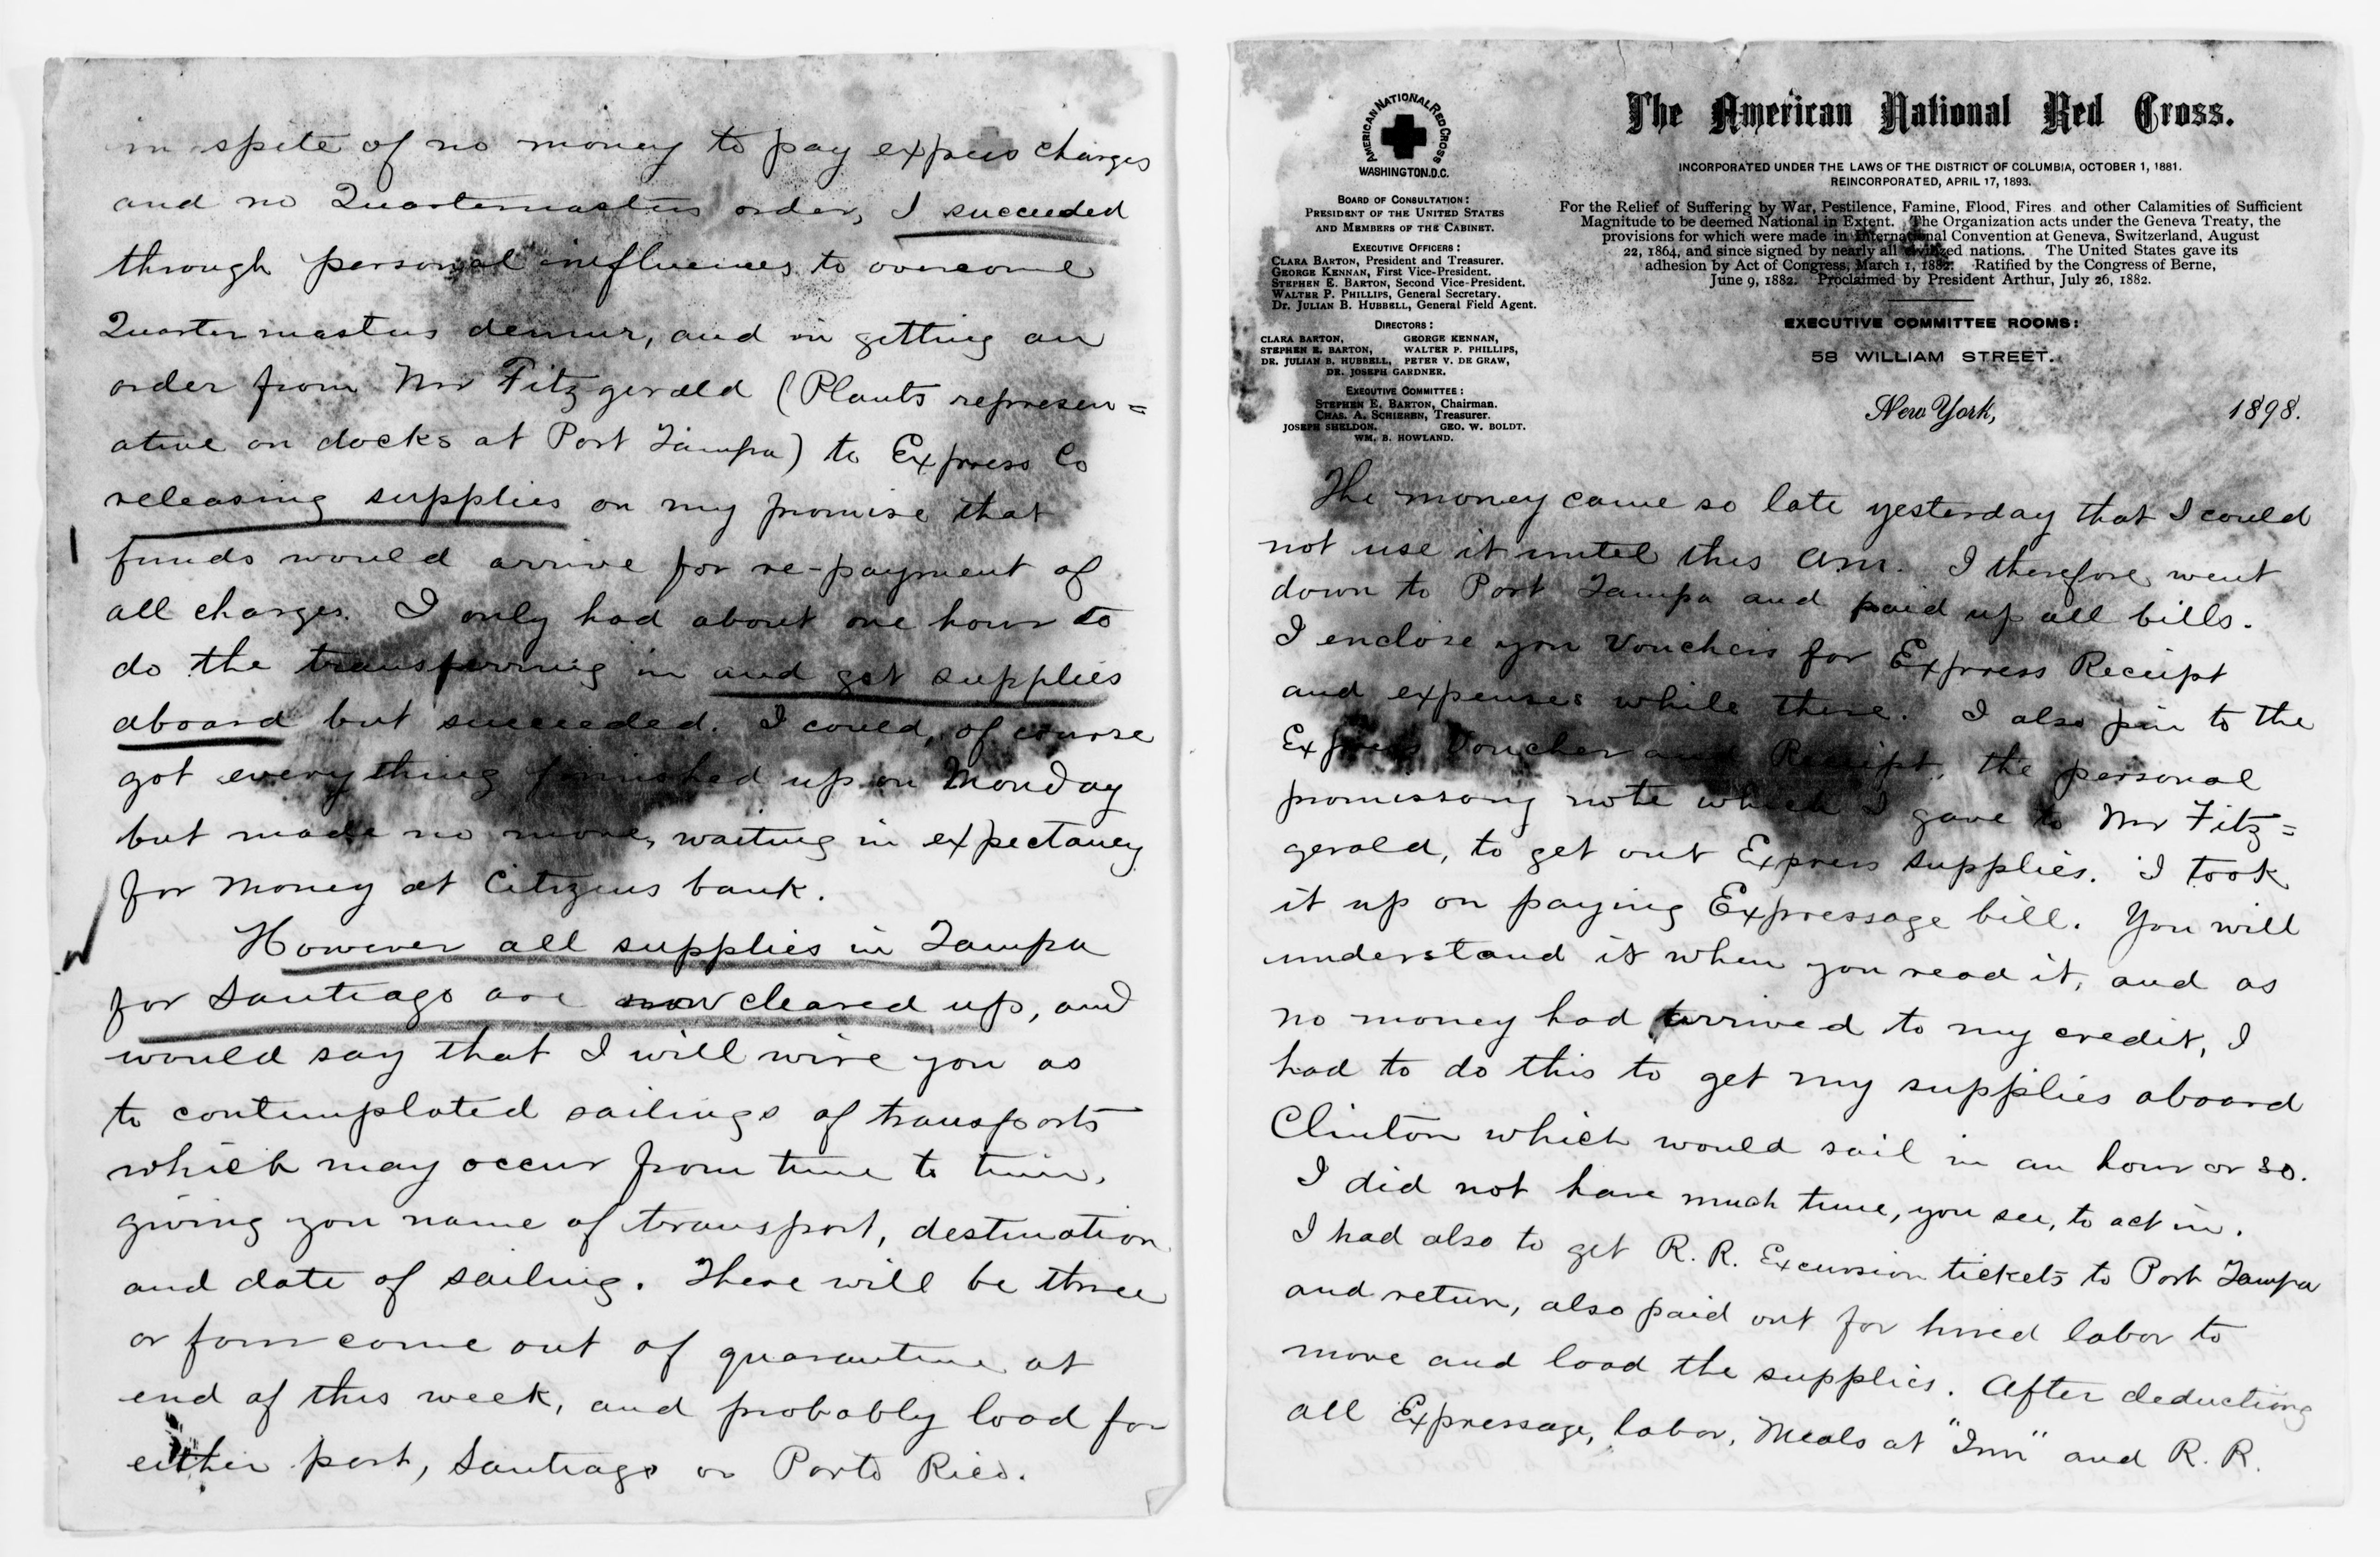 in spite of no money to pay express charges
and no Quartermasters order, I succeeded
through personal influences to overcome
Quartermasters demur, and in getting an
order from Mr Fitzgerald (Plants represen=
ative on docks at Port Tampa) to Express Co
releasing supplies on my promise that
funds would arrive for re-payment of
all charges. I only had about one hour to
do the transferring in and got supplies
aboard but succeeded. I could, of course
got everything finished up on Monday
but made no move, waiting in expectancy
for money at Citizens bank.
However all supplies in Tampa
for Santiago are now cleared up, and
would say that I will wire you as
to contemplated sailings of transports
which may occur from time to time,
giving you name of transport, destination
and date of sailing. There will be three
or four come out of quarantine at
end of this week, and probably load for
either port, Santiago or Porto Rico.
AMERICAN NATIONAL RED CROSS
WASHINGTON.D.C.
BOARD OF CONSULTATION:
PRESIDENT OF THE UNITED STATES
AND MEMBERS OF THE CABINET.
EXECUTIVE OFFICERS:
CLARA BARTON, President and Treasurer.
GEORGE KENNAN, First Vice-President.
STEPHEN E. BARTON, Second Vice-President.
WALTER P. PHILLIPS, General Secretary.
DR. JULIAN B. HUBBELL, General Field Agent.
DIRECTORS:
CLARA BARTON, GEORGE KENNAN,
STEPHEN E. BARTON, WALTER P. PHILLIPS,
DR. JULIAN B. HUBBELL, PETER V. DE GRAW,
DR. JOSEPH GARDNER.
EXECUTIVE COMMITTEE:
STEPHEN E. BARTON, Chairman.
CHAS. A. SCHIEREN, Treasurer.
JOSEPH SHELDON. GEO. W. BOLDT.
WM. B. HOWLAND.
The American National Red Cross.
INCORPORATED UNDER THE LAWS OF THE DISTRICT OF COLUMBIA, OCTOBER 1, 1881.
REINCORPORATED, APRIL 17, 1893.
For the Relief of Suffering by War, Pestilence, Famine, Flood, Fires and other Calamities of Sufficient
Magnitude to be deemed National in Extent. The Organization acts under the Geneva Treaty, the
provisions for which were made in International Convention at Geneva, Switzerland, August
22, 1864, and since signed by nearly all civilized nations. The United States gave its
adhesion by Act of Congress, March 1, 1882. Ratified by the Congress of Berne,
June 9, 1882. Proclaimed by President Arthur, July 26, 1882.
EXECUTIVE COMMITTEE ROOMS:
58 WILLIAM STREET.
New York, 1898.
The money came so late yesterday that I could
not use it until this a.m. I therefore went
down to Port Tampa and paid up all bills.
I enclose you Vouchers for Express Receipt
and expenses while there. I also pin to the
Express Voucher and Receipt, the personal
promissory note which I gave to Mr Fitz=
gerald, to get out Express supplies. I took
it up on paying Expressage bill. You will
understand it when you read it, and as
no money had arrived to my credit, I
had to do this to get my supplies aboard
Clinton which would sail in an hour or so.
I did not have much time, you see, to act in.
I had also to get R. R. Excursion tickets to Port Tampa
and return, also paid out for hired labor to
move and load the supplies. After deducting
all Expressage, labor, Meals at "Inn" and R. R.